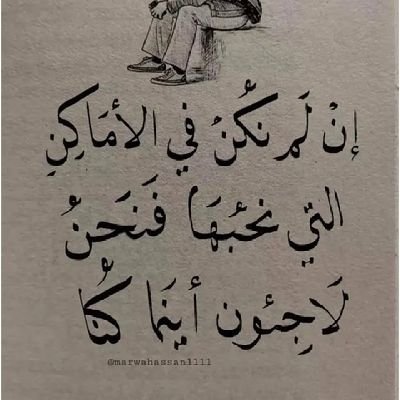 إنْ لَم نكُنْ في الأمَاكِنِ
التي نحُبهَا فَنَحنُ
لَاجِئون أينَما كُنَّا
@marwahassan1111